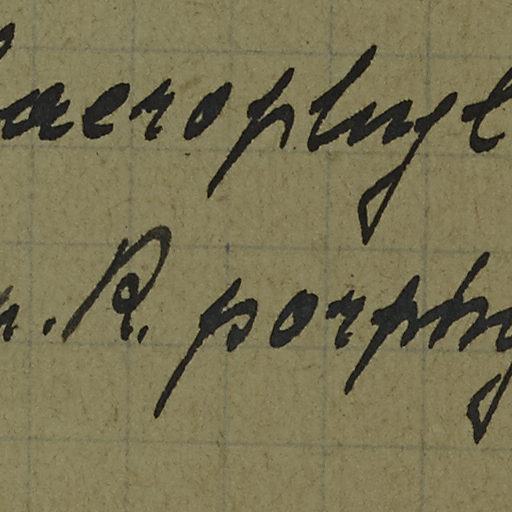 haerophyl
n. R. porphy